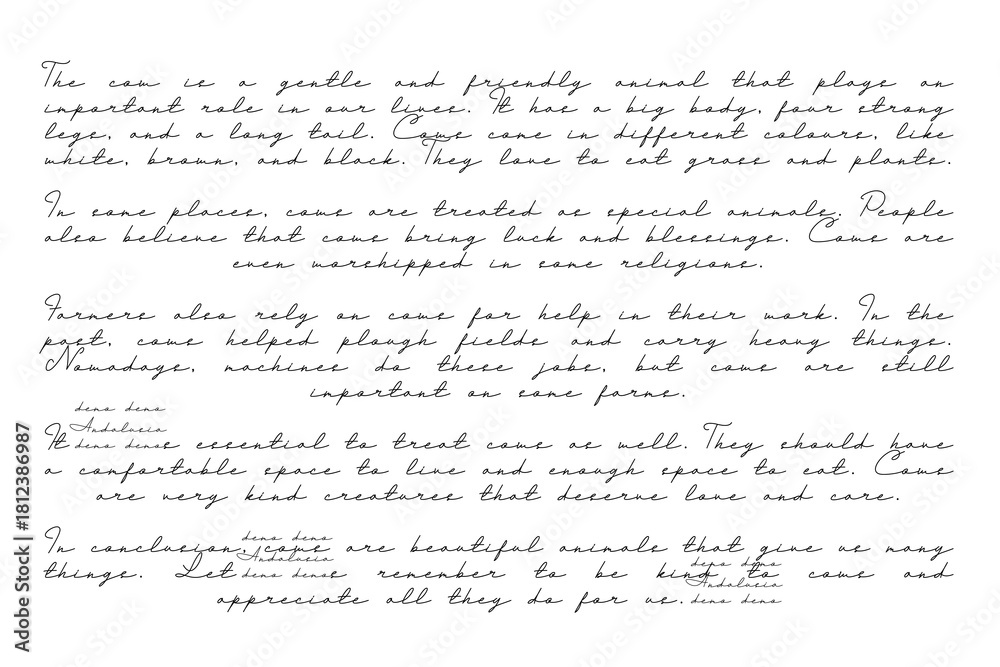 The cow is a gentle and friendly animal that plays an
important role in our lives. It has a big body, four strong
legs, and a long tail. Cows come in different colours, like
white, brown, and black. They love to eat grass and plants.
In some places, cows are treated as special animals. People
also believe that cows bring luck and blessings. Cows are
even worshipped in some religions.
Farmers also rely on cows for help in their work. In the
past, cows helped plough fields and carry heavy things.
Nowadays, machines do these jobs, but cows are still
important on some farms.
demo demo
Andalusia
It demo demos essential to treat cows as well. They should have
a comfortable space to live and enough space to eat. Cows
are very kind creatures that deserve love and care.
demo demo
In conclusion, cows are beautiful animals that give us many
Andalusia
things. Let demo demos remember to be kind to cows and
demo demo
Andalusia
appreciate all they do for us. demo demo
Adobe Stock | #1812386987